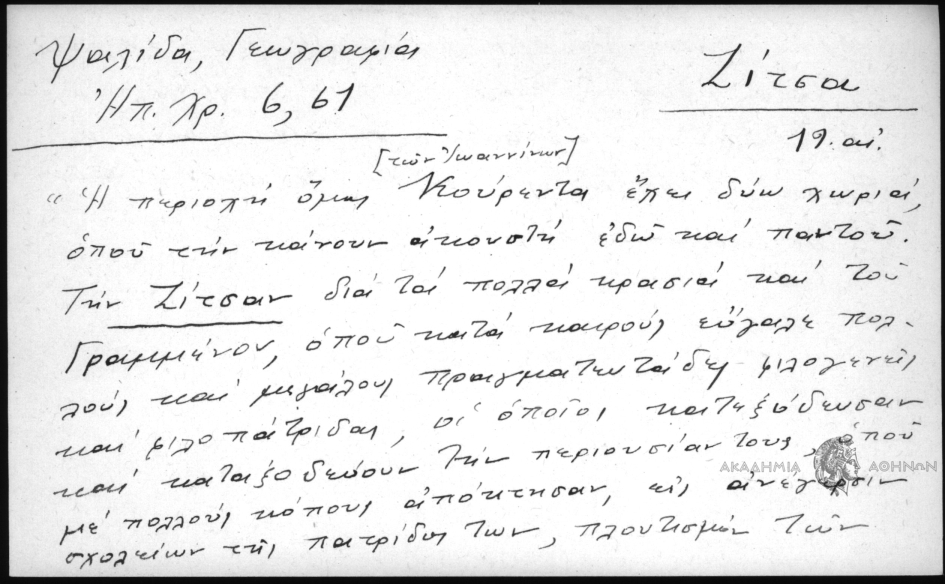 Ψαλίδα, Γεωγραφία
Ἠπ. Χρ. 6, 61
Ζίτσα
19. αἰ.
[τῶν Ἰωαννίνων]
“Ἡ περιοχή ὅμως Κούρεντα ἔχει δύω χωριά,
ὁποῦ τήν κάνουν ἀκουστή ἐδῶ καί παντοῦ.
Τήν Ζίτσαν διά τά πολλά κρασιά καί τοῦ
Γραμμένου, ὁποῦ κατά καιρούς εὔγαλε πολ-
λούς καί μεγάλους πραγματευτάδες φιλογενεῖς
καί φιλοπάτριδας, οἱ ὁποῖοι κατεξόδευσαν
καί καταξοδεύουν τήν περιουσίαν τους, ὁποῦ
μέ πολλούς κόπους ἀπόκτησαν, εἰς ἀνέγερσιν
σχολείων τῆς πατρίδος των, πλουτισμόν τῶν
ΑΚΑΔΗΜΙΑ ΑΘΗΝΩΝ